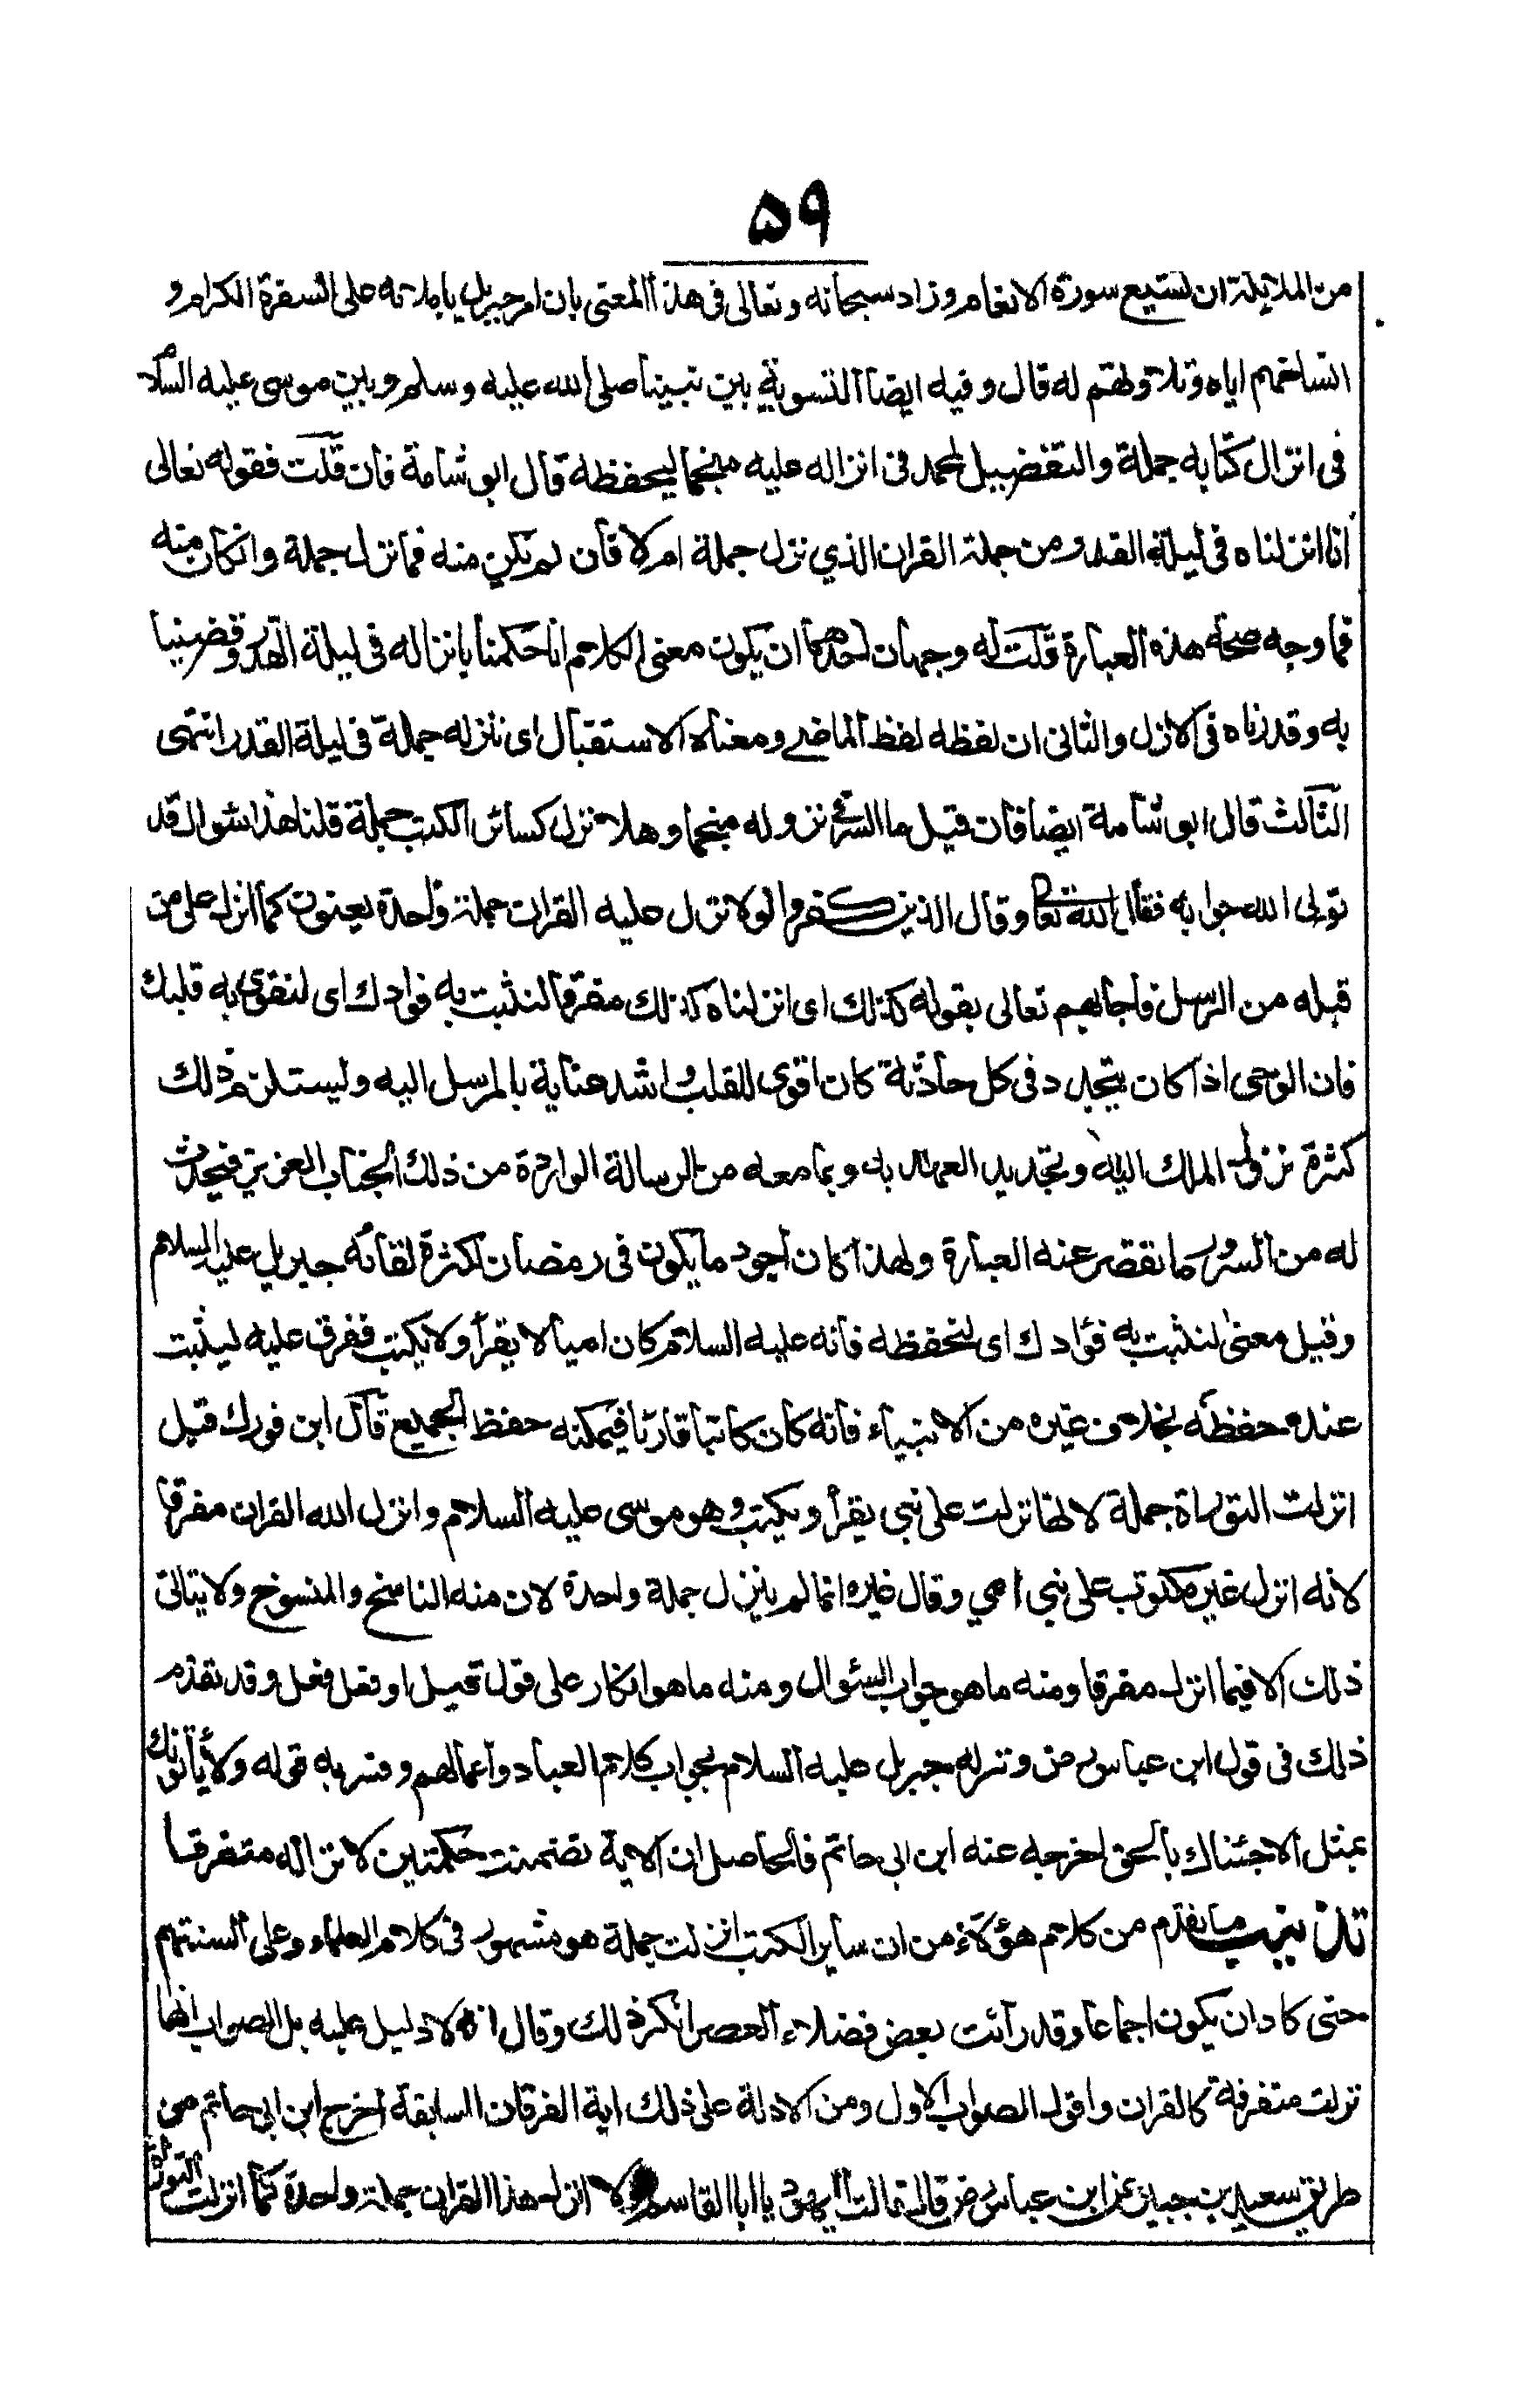 ۵۹
من الملائكة ان تشيع سورة الانعام وزاد سبحانه وتعالى فى هذا المعنى بان امر جبريل باملائه على السفرة الكرام و
انساخهم اياه وتلاوتهم له قال وفيه ايضا التسوية بين نبينا صلى الله عليه وسلم وبين موسى عليه السلام
فى انزال كتابه جملة والتفضيل لمحمد فى انزاله عليه منجما ليحفظه قال ابو شامة فان قلت فقوله تعالى
انا انزلناه فى ليلة القدر من جملة القران الذي نزل جملة ام لا فان لم يكن منه فما نزل جملة وانكان منه
فما وجه صحة هذه العبارة قلت له وجهان احدهما ان يكون معنى الكلام انا حكمنا بانزاله فى ليلة القدر وقضينا
به وقدرناه فى الازل والثانى ان لفظه لفظ الماضي ومعناه الاستقبال اى ننزله جملة فى ليلة القدر انتهى
الثالث قال ابو شامة ايضا فان قيل ما السر فى نزوله منجما وهلا نزل كسائر الكتب جملة قلنا هذا سوال قد
تولى الله جوابه فقال الله تعا وقال الذين كفروا لولا نزل عليه القران جملة واحدة يعنون كما انزل على من
قبله من الرسل فاجابهم تعالى بقوله كذلك اى انزلناه كذلك مفرقا لنثبت به فوادك اى لنقوي به قلبك
فان الوحى اذا كان يتجدد فى كل حادثة كان اقوى للقلب واشد عناية بالمرسل اليه وليستلزم ذلك
كثرة نزول الملك اليه وتجديد العهد به وبما معه من الرسالة الواردة من ذلك الجناب العزيز فيحدث
له من السرور ما تقصر عنه العبارة ولهذا كان اجود ما يكون فى رمضان لكثرة لقائه جبريل عليه السلام
وقيل معنى لنثبت به فؤادك اى لتحفظه فانه عليه السلام كان اميا لا يقرأ ولا يكتب ففرق عليه ليثبت
عنده حفظه بخلاف غيره من الانبياء فانه كان كاتبا قارئا فيمكنه حفظ الجميع قال ابن فورك قيل
انزلت التوراة جملة لانها نزلت على نبي يقرأ ويكتب وهو موسى عليه السلام وانزل الله القران مفرقا
لانه انزل غير مكتوب على نبي امي وقال غيره انما لم ينزل جملة واحدة لان منه الناسخ والمنسوخ ولا يتاتى
ذلك الا فيما انزل مفرقا ومنه ما هو جواب السئوال ومنه ما هو انكار على قول قيل او فعل فعل وقد تقدم
ذلك فى قول ابن عباس رض ونزله جبريل عليه السلام بجواب كلام العباد واعمالهم وفسر به قوله ولا ياتونك
بمثل الا جئناك بالحق اخرجه عنه ابن ابى حاتم فالحاصل ان الاية تضمنت حكمتين لانزاله متفرقا
تذنيب ما تقدم من كلام هؤلاء من ان ساير الكتب انزلت جملة هو مشهور فى كلام العلماء وعلى السنتهم
حتى كاد ان يكون اجماعا وقد رأئت بعض فضلاء العصر انكر ذلك وقال انه لا دليل عليه بل الصواب انها
نزلت متفرقة كالقران واقول الصواب الاول ومن الادلة على ذلك اية الفرقان السابقة اخرج ابن ابى حاتم من
طريق سعيد بن جبير عن ابن عباس رض قال قالت اليهود يا ابا القاسم لولا انزل هذا القران جملة واحدة كما انزلت التوراة